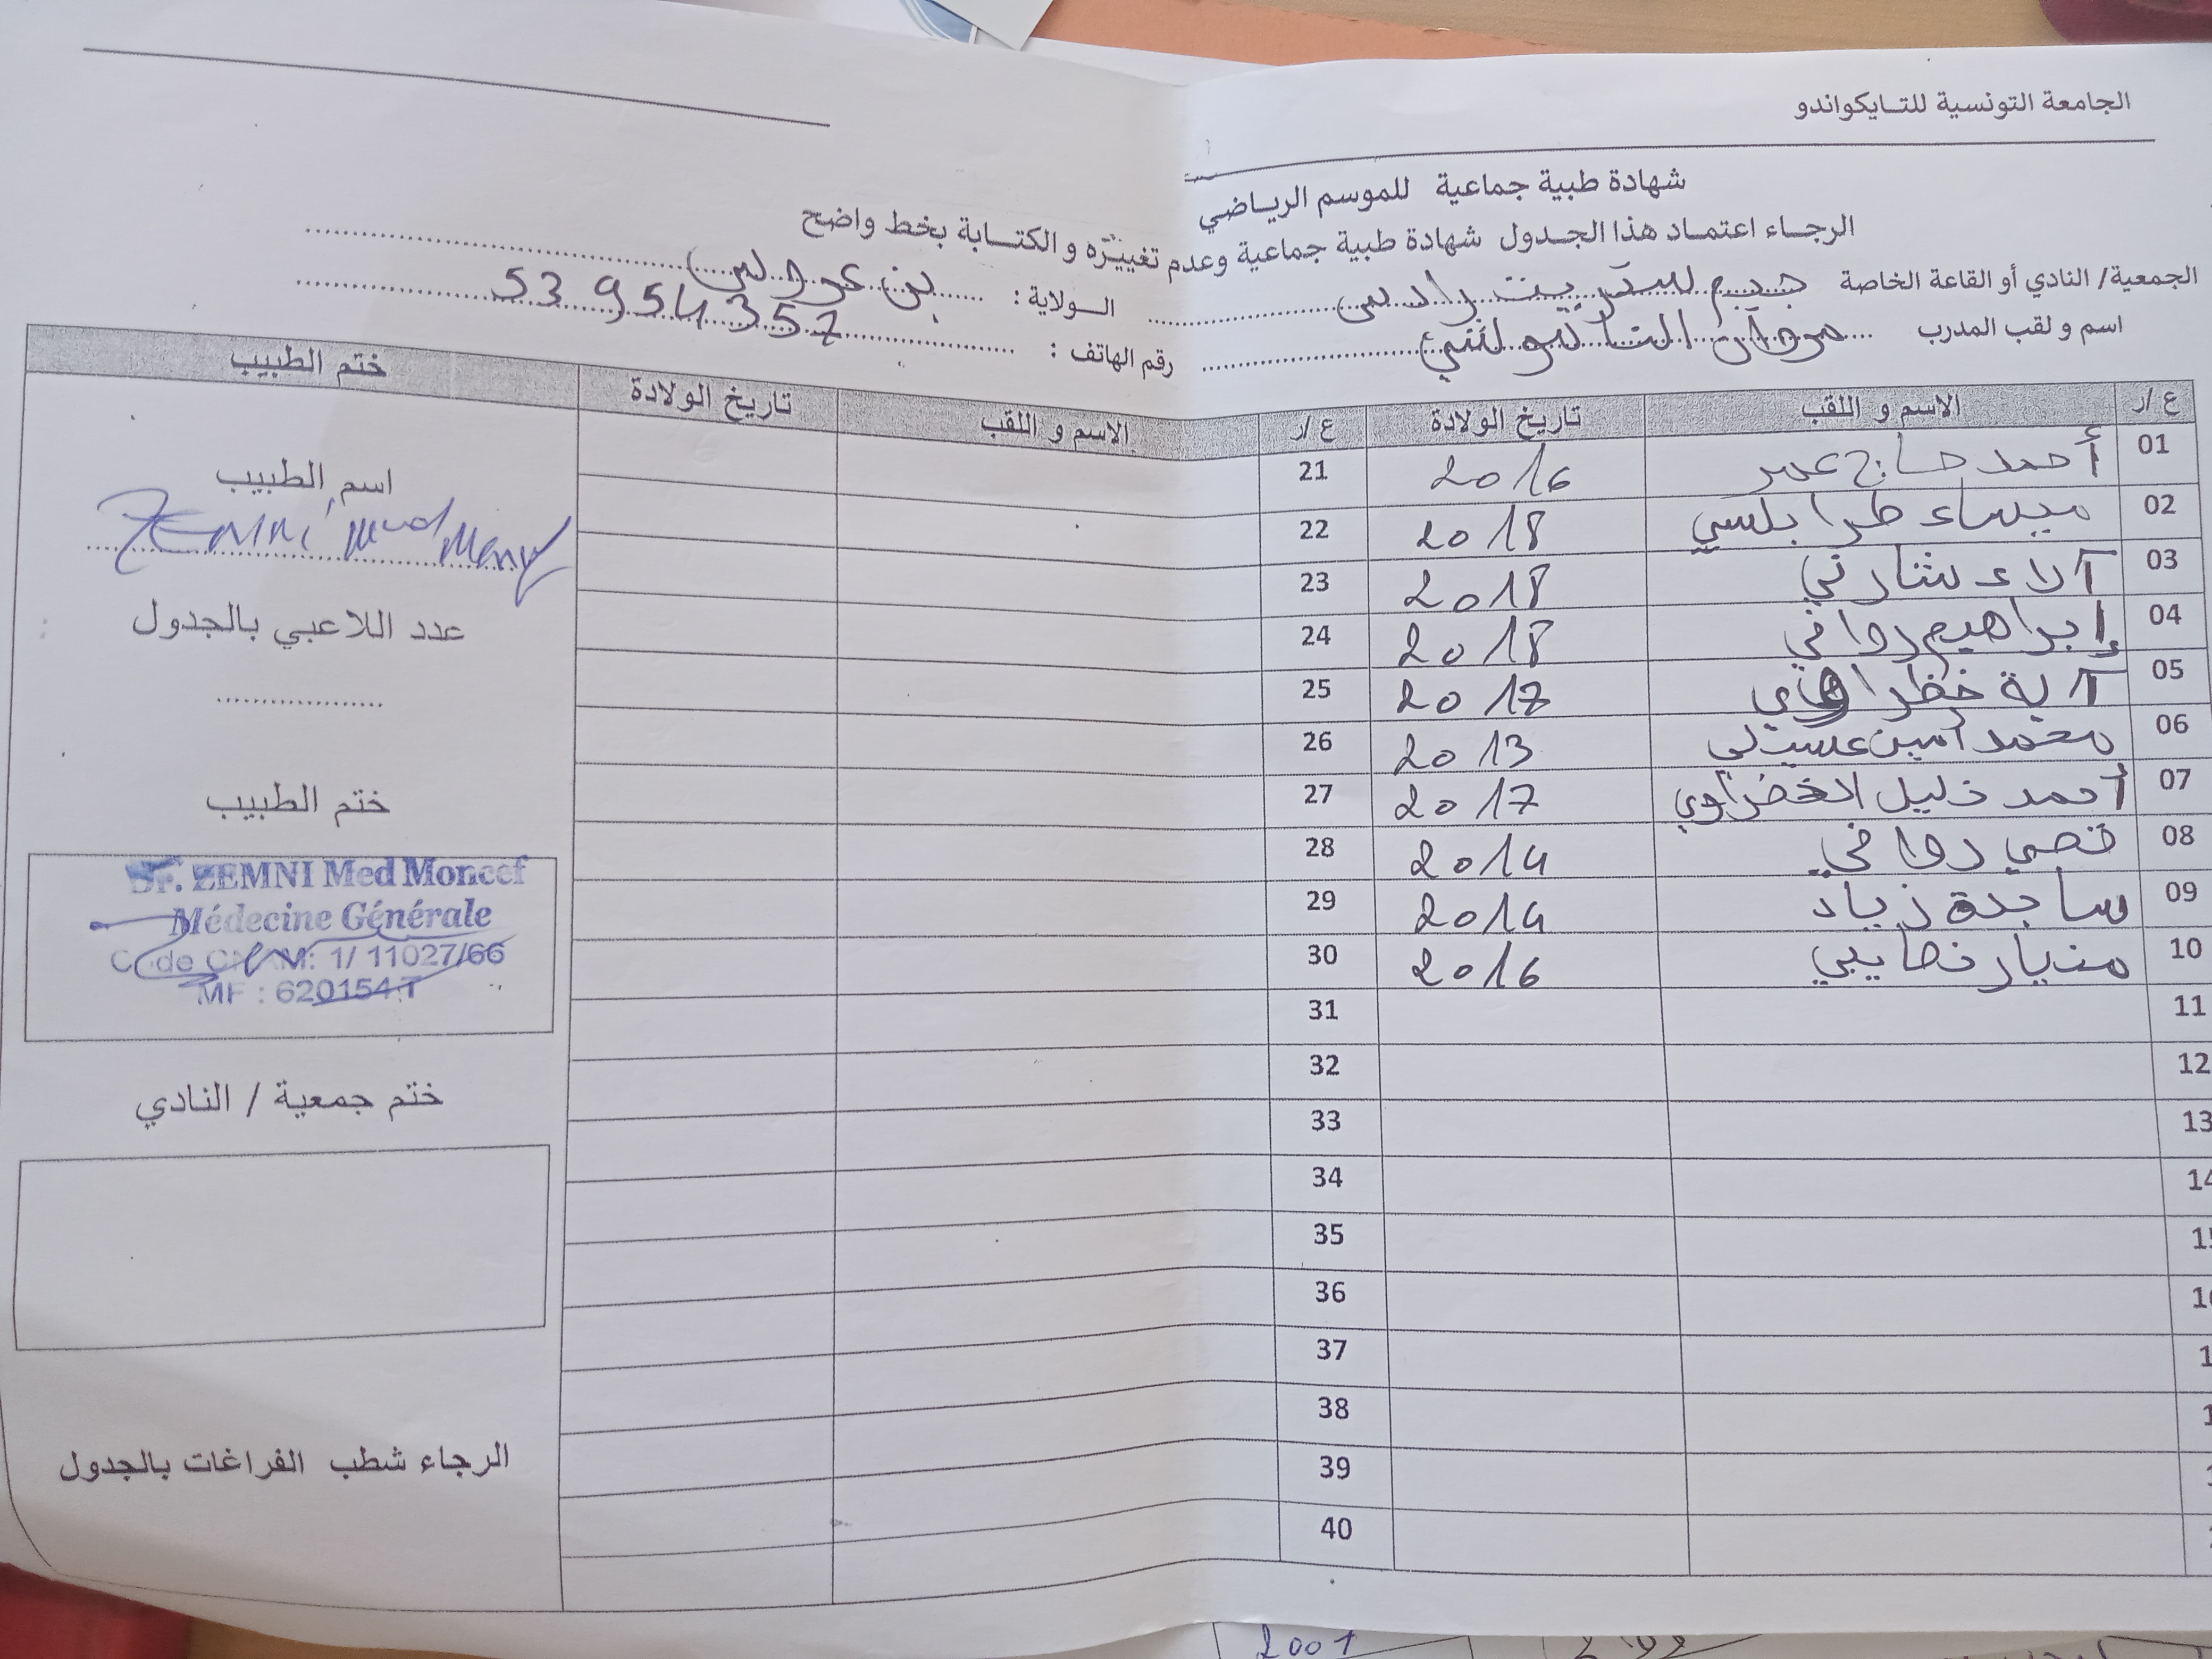 الجامعة التونسية للتايكواندو
شهادة طبية جماعية للموسم الرياضي
الرجاء اعتماد هذا الجدول شهادة طبية جماعية وعدم تغييره و الكتابة بخط واضح
الجمعية/ النادي أو القاعة الخاصة جيم ستريت رادس الولاية : بن عروس
اسم و لقب المدرب مروان رقم الهاتف : 53 954 357
ع /ر الاسم و اللقب تاريخ الولادة ع /ر الاسم و اللقب تاريخ الولادة ختم الطبيب
01 أحمد حاج عمر 2016 21
02 ميساء طرابلسي 2018 22
03 آلاء شارني 2018 23
04 إبراهيم روافي 2018 24
05 آية خظراوي 2017 25
06 محمد أمين عسيلي 2013 26
07 أحمد خليل الخضراوي 2017 27
08 قصي روافي 2014 28
09 ساجدة زياد 2014 29
10 منيار نصايبي 2016 30
11 31
12 32
13 33
14 34
35
36
37
38
39
40
اسم الطبيب
ZEMNI Med
عدد اللاعبي بالجدول
ختم الطبيب
Dr. ZEMNI Med Moncef
Médecine Générale
Code CNAM: 1/ 11027/66
MF : 620154T
ختم جمعية / النادي
الرجاء شطب الفراغات بالجدول
2001